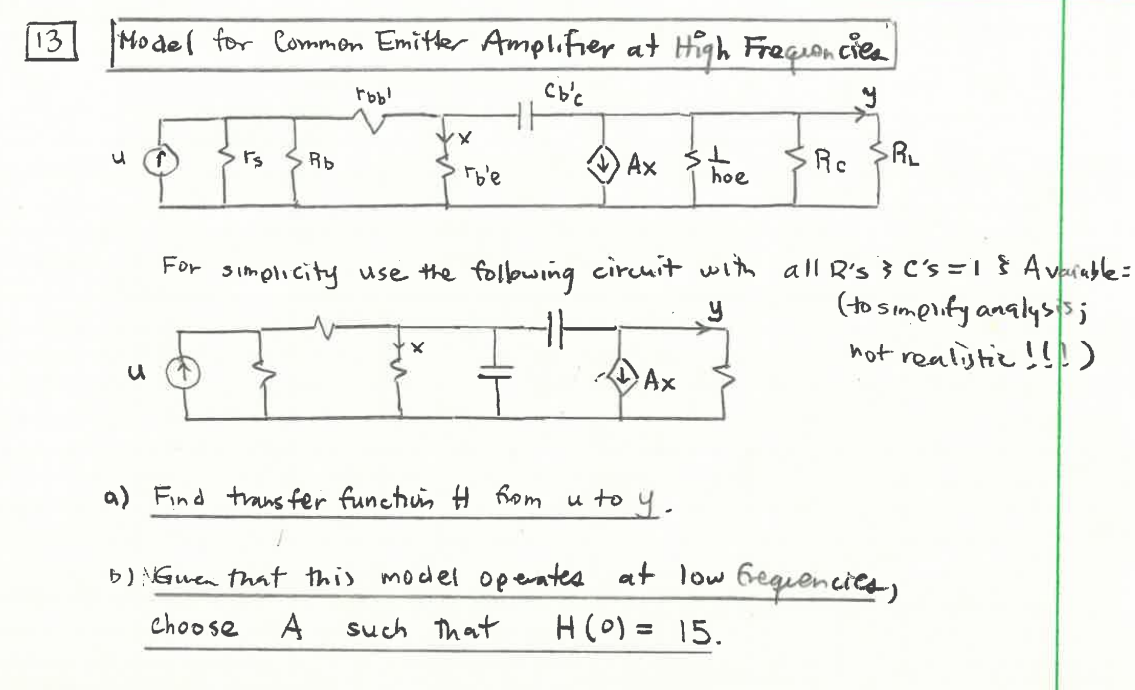 13
Model for Common Emitter Amplifier at High Frequencies
rbb' Cb'c y
u rs Rb x rb'e Ax 1/hoe Rc RL
For simplicity use the following circuit with all R's & C's = 1 & A variable =
(to simplify analysis;
not realistic !!!)
y
u x Ax
a) Find transfer function H from u to y.
b) Given that this model operates at low frequencies,
choose A such that H(0) = 15.